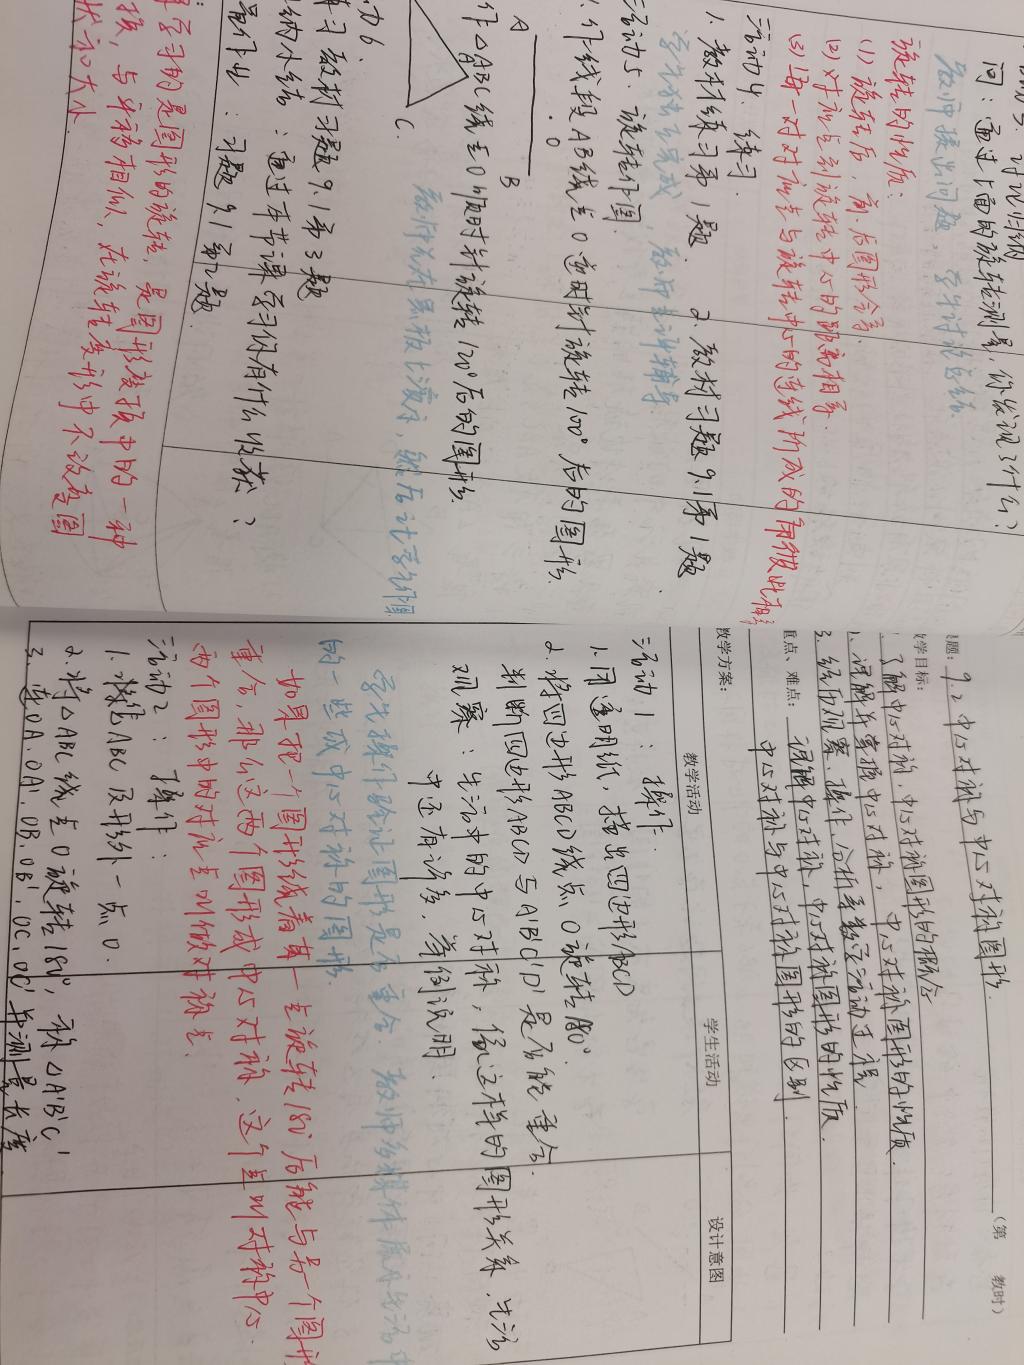 问：通过上面的旋转测量，你发现了什么？
教师提出问题，学生讨论总结
旋转的性质：
(1) 旋转后，前、后图形全等.
(2) 对应点到旋转中心的距离相等.
(3) 每一对对应点与旋转中心的连线所成的角彼此相等
活动4. 练习.
1. 教材练习第1题. 2. 教材习题9.1第1题
学生独立完成，教师
活动5. 旋转作图
1. 作线段AB绕点O逆时针旋转100°后的图形.
A
B
O
作△ABC绕点O顺时针旋转120°后的图形.
C.
教师先在黑板上演示，然后让学生作图
动6.
教材习题9.1第3题
纳小结：通过本节课学习你有什么收获？
置作业：习题9.1第2题.
学习的是图形的旋转，是图形变换中的一种
换，与平移相似，在旋转变形中不改变图
状和大小
题：9.2中心对称与中心对称图形.
(第 教时)
学目标：
1. 了解中心对称，中心对称图形的概念
2. 理解并掌握中心对称，中心对称图形的性质.
3. 经历观察、操作、分析等数学活动过程
重点、难点：理解中心对称，中心对称图形的性质.
中心对称与中心对称图形的区别.
教学方案：
教学活动 学生活动 设计意图
活动1：操作.
1. 用透明纸，描出四边形ABCD
2. 将四边形ABCD绕点O旋转180°.
判断四边形ABCD与A'B'C'D'是否能重合.
观察：生活中的中心对称，像这样的图形关系，生活
中还有许多，举例说明.
学生操作验证图形是否重合. 教师
的一些成中心对称的图形.
如果把一个图形绕着某一点旋转180°后能与另一个图形
重合，那么这两个图形成中心对称. 这个点叫对称中心.
两个图形中的对应点叫做对称点.
活动2：操作：
1. △ABC及形外一点O.
2. 将△ABC绕点O旋转180°，称△A'B'C'
3. 连OA.OA'.OB.OB'.OC.OC'并测量长度